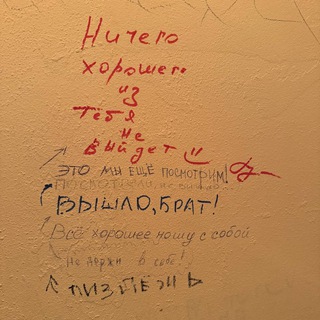 Ничего
хорошего
из
тебя
не
выйдет
ЭТО МЫ ЕЩЁ ПОСМОТРИМ!
ПОСМОТРЕЛИ, не вышло
ВЫШЛО, БРАТ!
Всё хорошее ношу с собой
Не держи в себе!
ПИЗДЁЖЬ